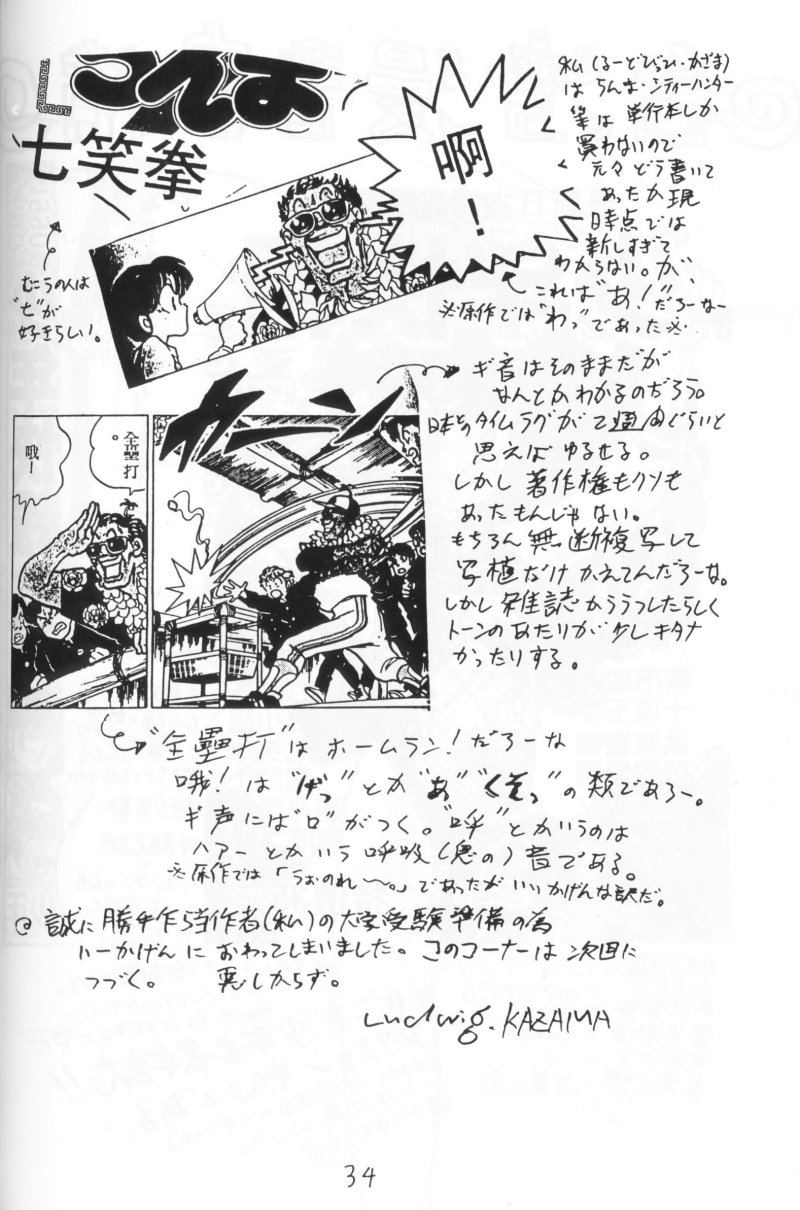 らんま
七笑拳
啊!
私(るーどびひ・かざま)
は らんま・シティーハンター
等は 単行本しか
買わないので
元々どう書いて
あったか現
時点では
新しすぎて
わからない。が、
これは"あ!"だろーなー
※原作では"わっ"であった※
むこうの人は
"七"が
好きらしい。
ギ音はそのままだが
なんとかわかるのだろう。
日本とのタイムラグが2週間ぐらいと
思えば ゆるせる。
しかし 著作権もクソも
あったもんじゃない。
もちろん 無断複写して
写植だけ かえてんだろーな。
しかし 雑誌からうつしたらしく
トーンのあたりが少しキタナ
かったりする。
カーン
全壘打。
哦!
"全壘打"は ホームラン! だろーな
哦! は "げっ" とか "あ" "くそっ" の類であろー。
ギ声には"口"がつく。"呼"とかいうのは
ハアー とかいう 呼吸(息の)音である。
※原作では「うぉのれ〜。」であったが いいかげんな訳だ。
◎ 誠に 勝手乍ら当作者(私)の大学受験準備の為
いーかげんに おわってしまいました。このコーナーは 次回に
つづく。 悪しからず。
Ludwig. KAZAMA
34